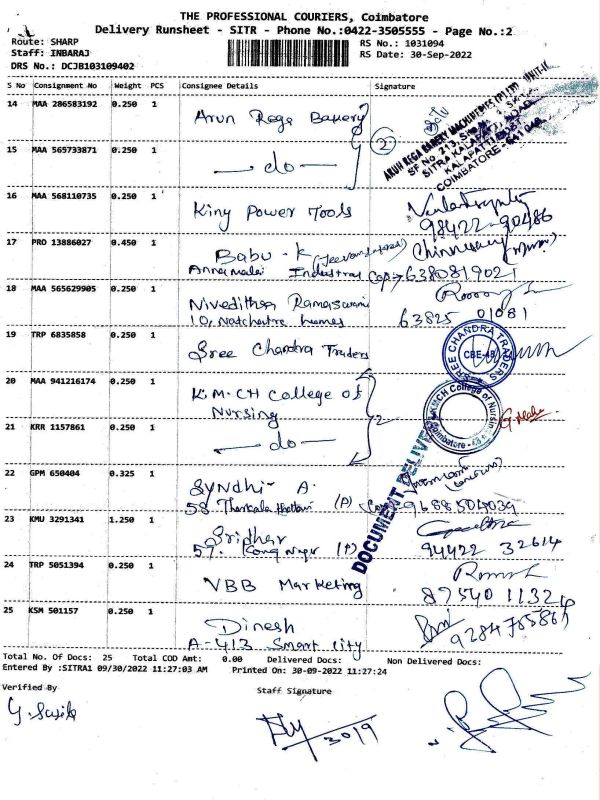 THE PROFESSIONAL COURIERS, Coimbatore
Delivery Runsheet - SITR - Phone No.:0422-3505555 - Page No.:2
Route: SHARP
Staff: INBARAJ
DRS No.: DCJB103109402
RS No.: 1031094
RS Date: 30-Sep-2022
S No Consignment No Weight PCS Consignee Details Signature
14 MAA 286583192 0.250 1 Arun Rega Bakery
15 MAA 565733871 0.250 1 — do —
2
ARUN REGA BAKERY MACHINERIES (P) LTD UNIT-K
SITRA KALAPATTI ROAD
KALAPATTI POST
COIMBATORE - 641 048
16 MAA 568110735 0.250 1 King Power Tools
98422-90486
17 PRO 13886027 0.450 1 Babu - K
Annamalai Industrial 6380819021
18 MAA 565629905 0.250 1 Nivedithaa Ramaswami
10, Natchatra homes 63825 01081
19 TRP 6835858 0.250 1 Sree Chandra Traders
SREE CHANDRA TRADERS
CBE-48
20 MAA 941216174 0.250 1 K.M.CH College of
Nursing
KMCH College of Nursing
Coimbatore - 48
21 KRR 1157861 0.250 1 — do —
2
DOCUMENT DELIVER
22 GPM 650404 0.325 1 Syndhi - A.
58 (P)
23 KMU 3291341 1.250 1 Sridhar
57. (P) 94422 32614
24 TRP 5051394 0.250 1 VBB Marketing
25 KSM 501157 0.250 1 Dinesh
A-413 Smart city
Total No. Of Docs: 25 Total COD Amt: 0.00 Delivered Docs: Non Delivered Docs:
Entered By :SITRA1 09/30/2022 11:27:03 AM Printed On: 30-09-2022 11:27:24
Verified By Staff Signature
30/9